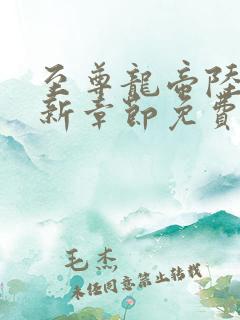 至尊龍帝陸
新章節免費
毛杰
未经同意禁止转载